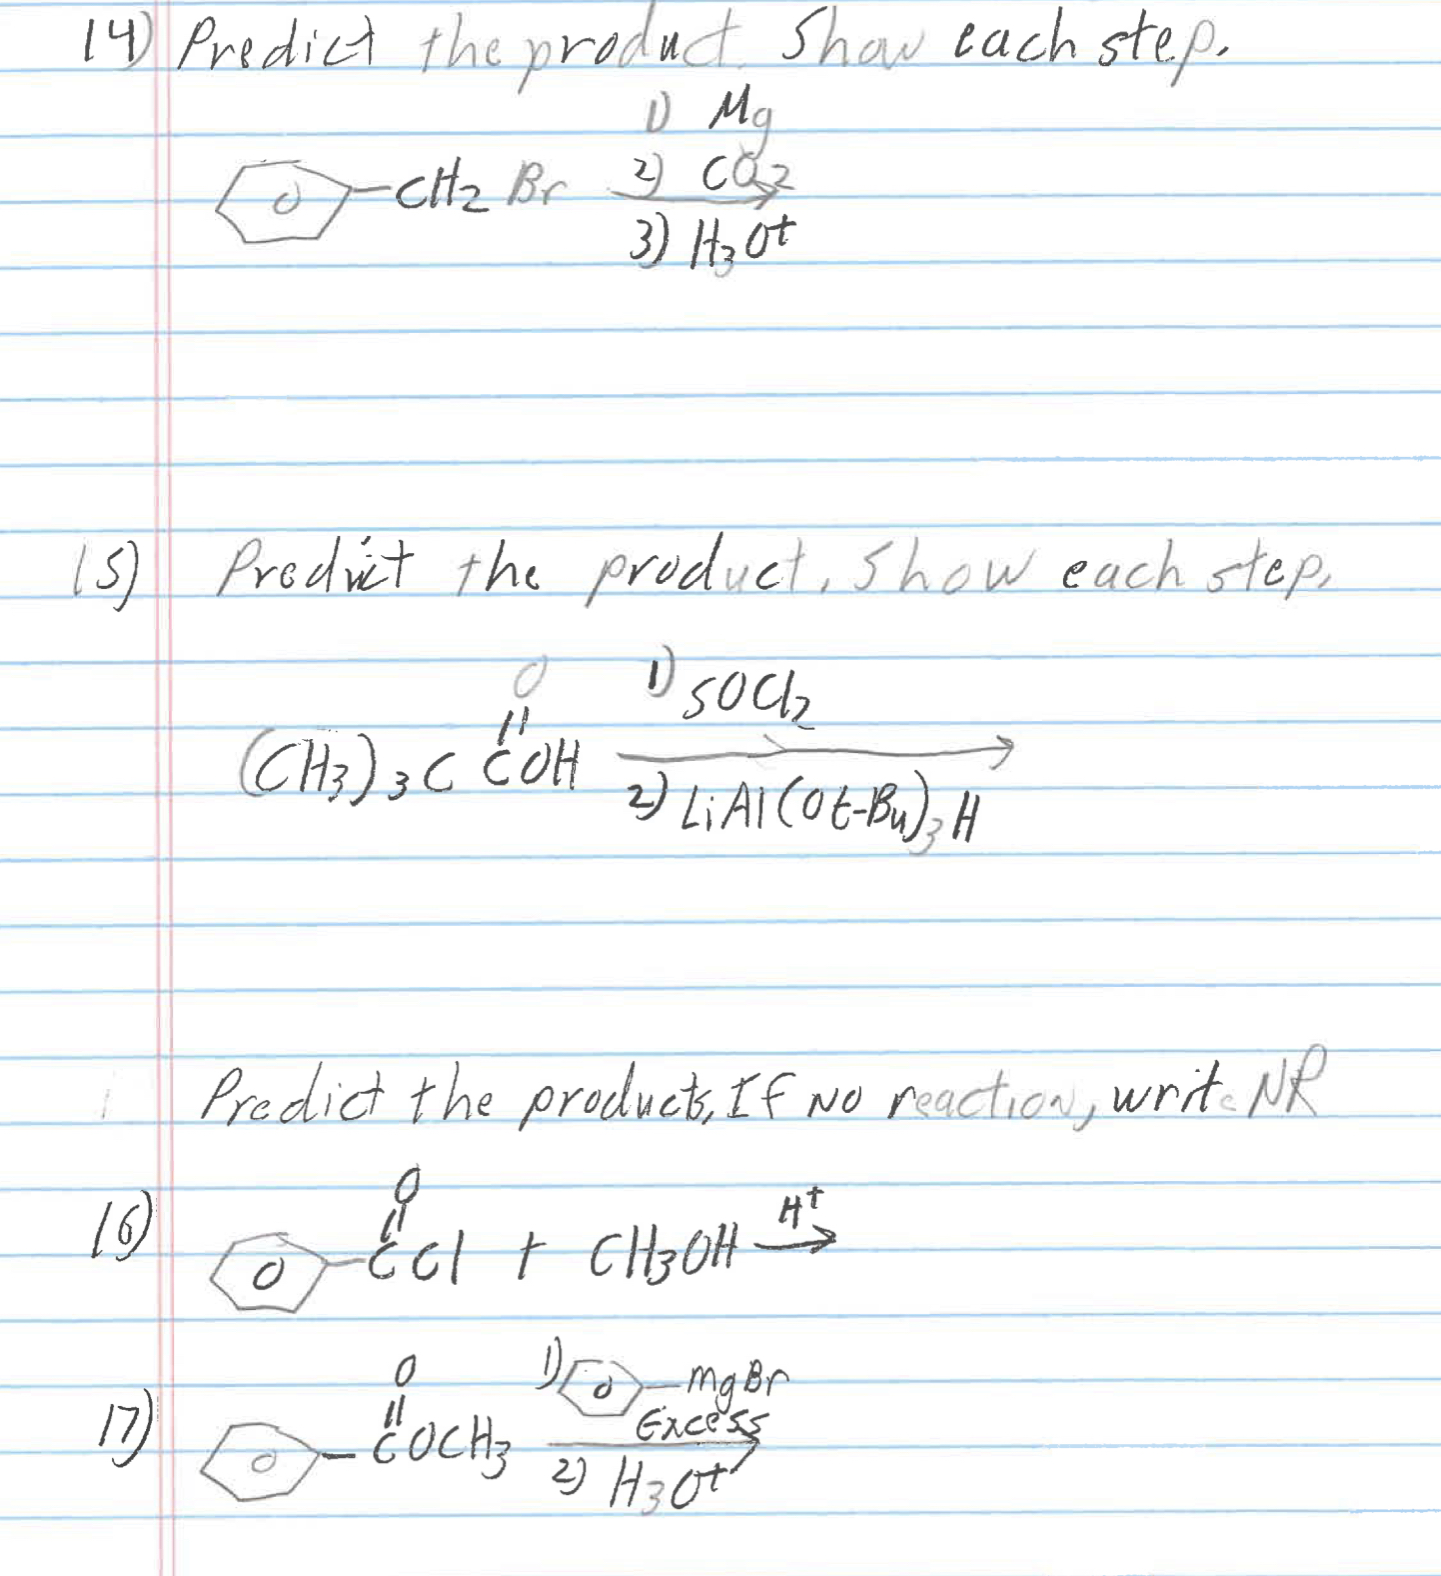 14) Predict the product. Show each step.
1) Mg
CH2 Br 2) CO2
3) H3O+
15) Predict the product. Show each step.
O 1) SOCl2
(CH3)3C COH
2) LiAl(Ot-Bu)3H
Predict the products, If NO reaction, write NR
16) O
CCl + CH3OH H+
17) O 1) MgBr
Excess
COCH3 2) H3O+